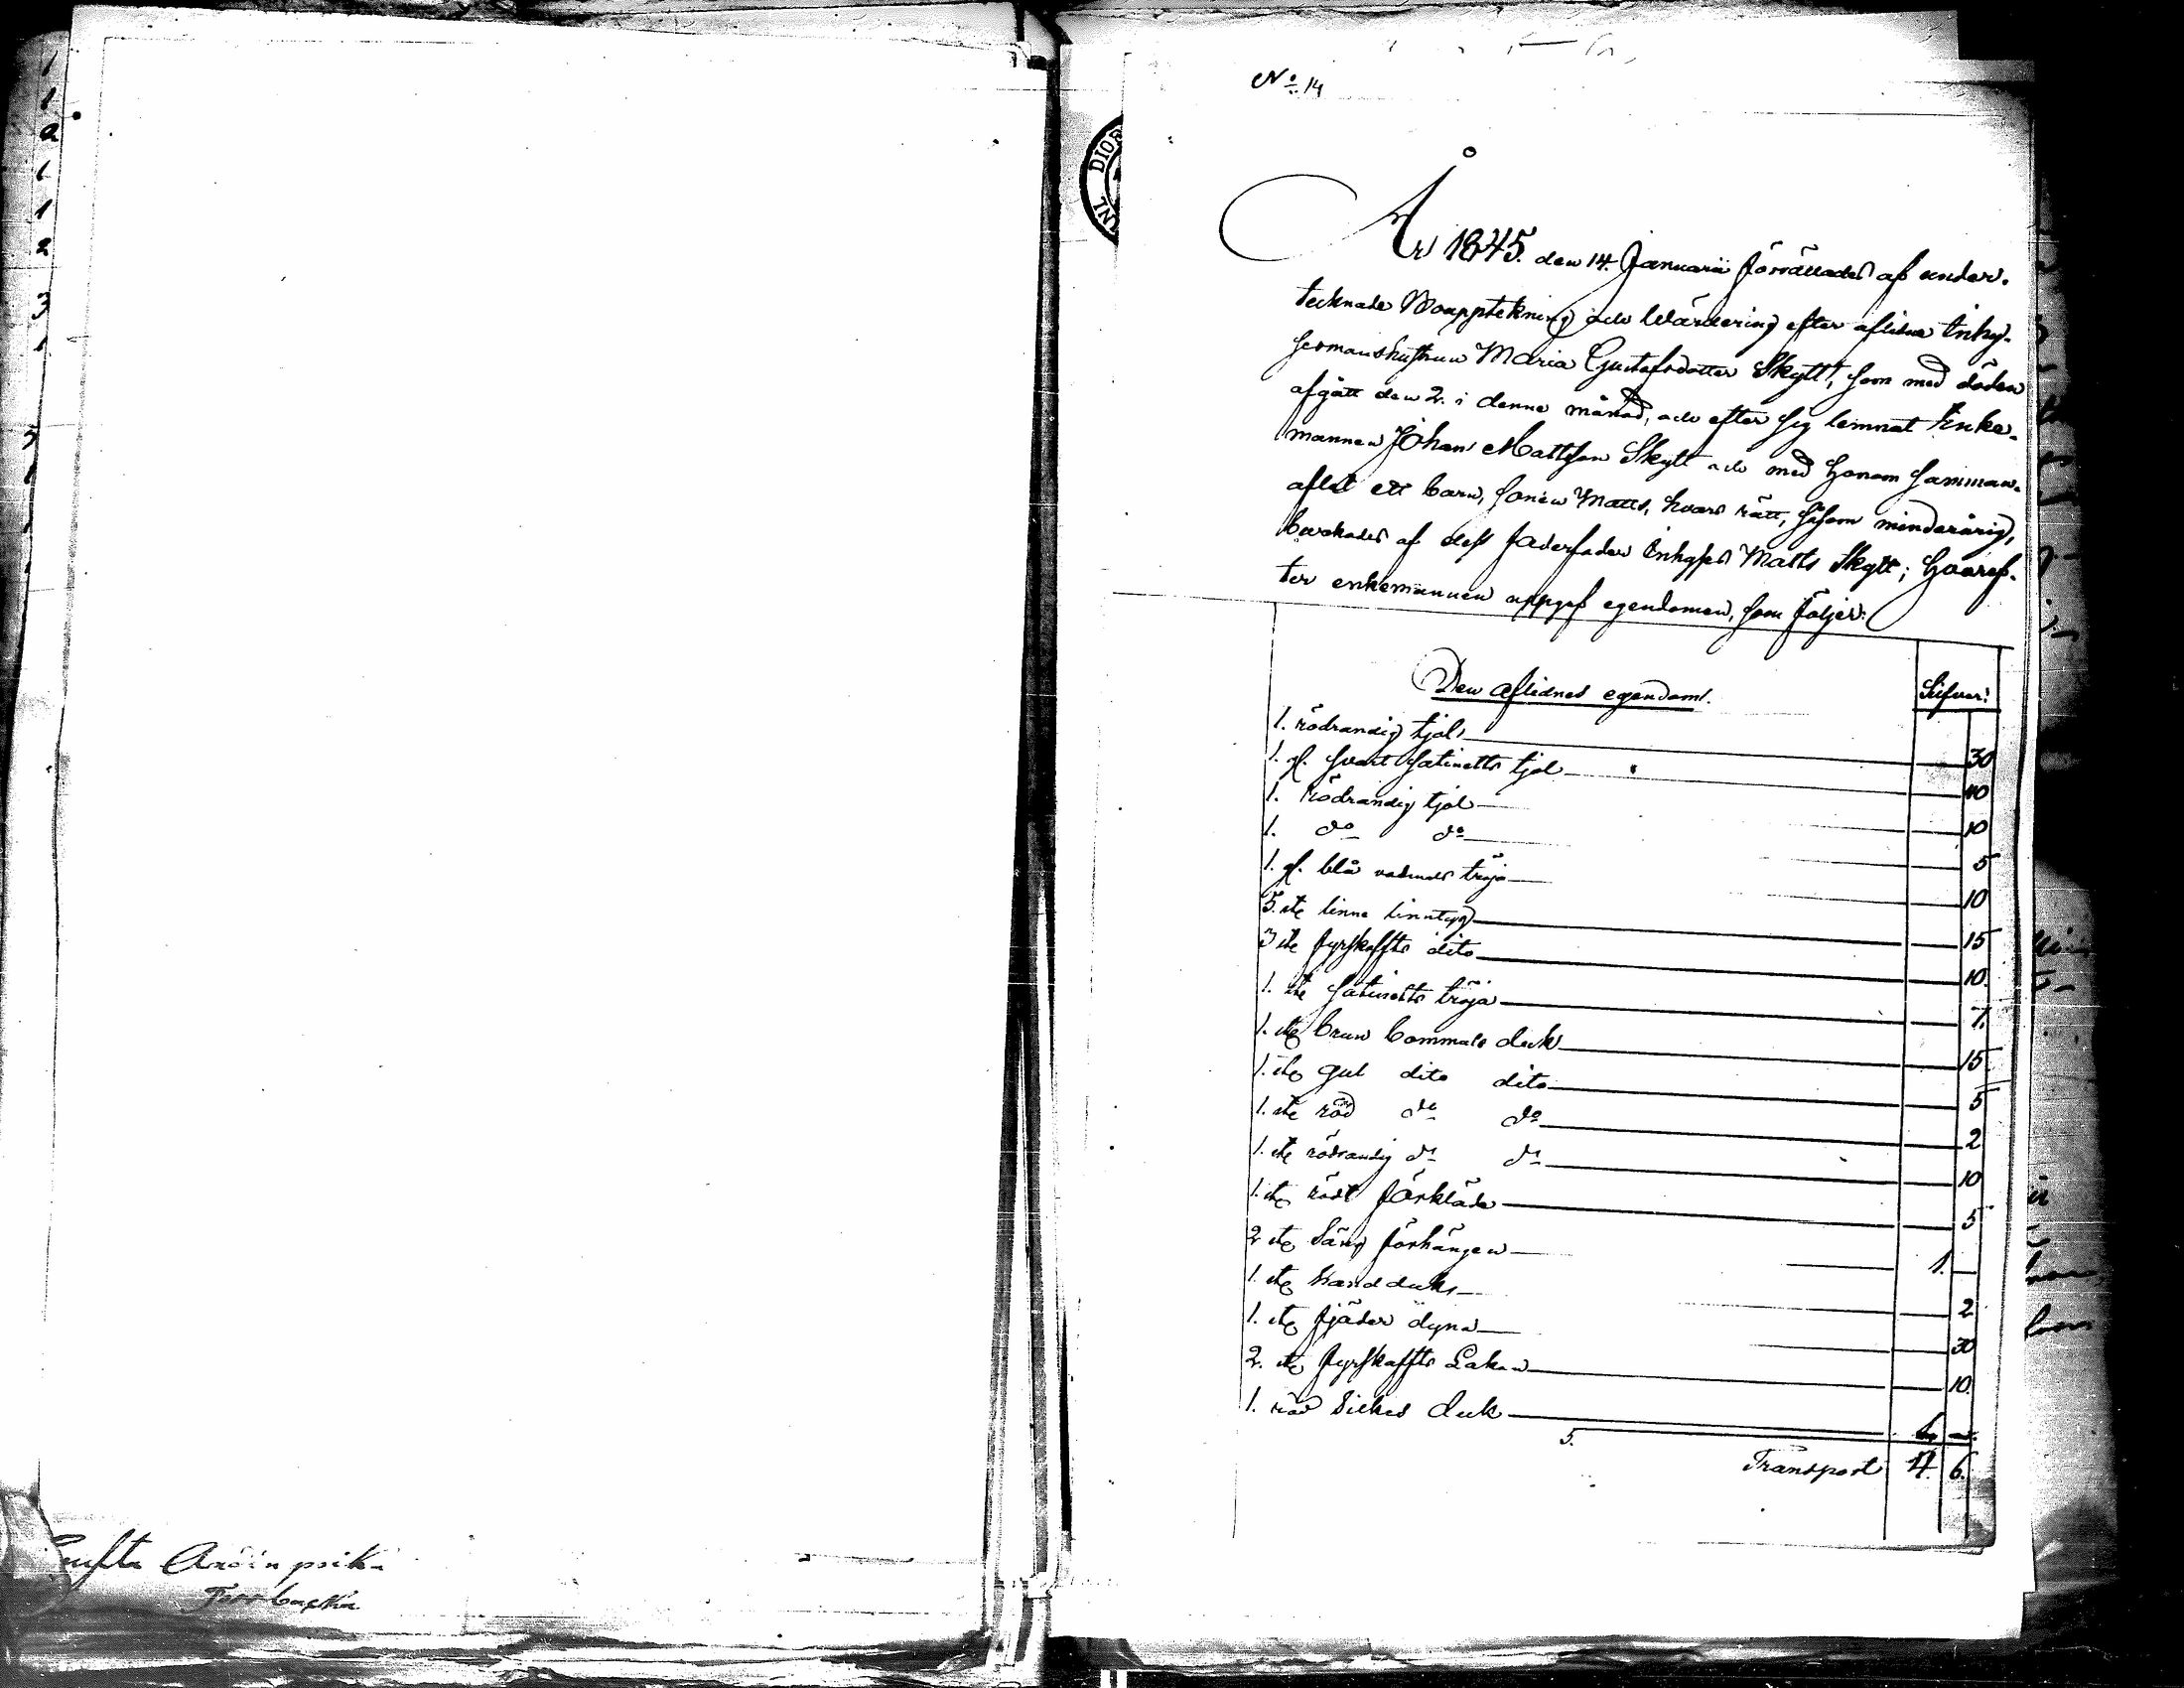 No 14
År 1845. den 14. Januarii förrättades af under-
tecknade Boupptekning och Wärdering efter aflidne Inhy-
sesmanshustrun Maria Gustafsdotter Skytt, som med döden
afgått den 2. i denne månad, och efter sig lemnat Enke-
mannen Johan Mattsson Skytt och med honom samman-
aflat ett barn, sonen Matts, hvars rätt, såsom minderårig,
bevakades af dess faderfader Inhyses Matts Skytt; hvaref-
ter enkemannen uppgaf egendomen, som följer:
Den aflidnes egendom. Silfver:
1. rödrandig kjol 30
1. gl. svart satinetts kjol 40
1. rödrandig kjol 10
1. do do 5
1. gl. blå vadmals tröja 10
5. st. linne linntyg 15
3 st. fyrskaffts dito 10.
1. st. satinetts tröja 7.
1. st. brun bommuls duk 15
1. st. gul dito dito 5
1. st. röd do do 2
1. st. rödrandig do do 10
1. st. rödt förkläde 5
2 st. Säng förhängen 1. —
1. st. handduk 2
1. st. fjäder dyna 30
2. st. fyrskaffts Lakan 10.
1. röd Silkes duk
5.
Transport 4. 6.